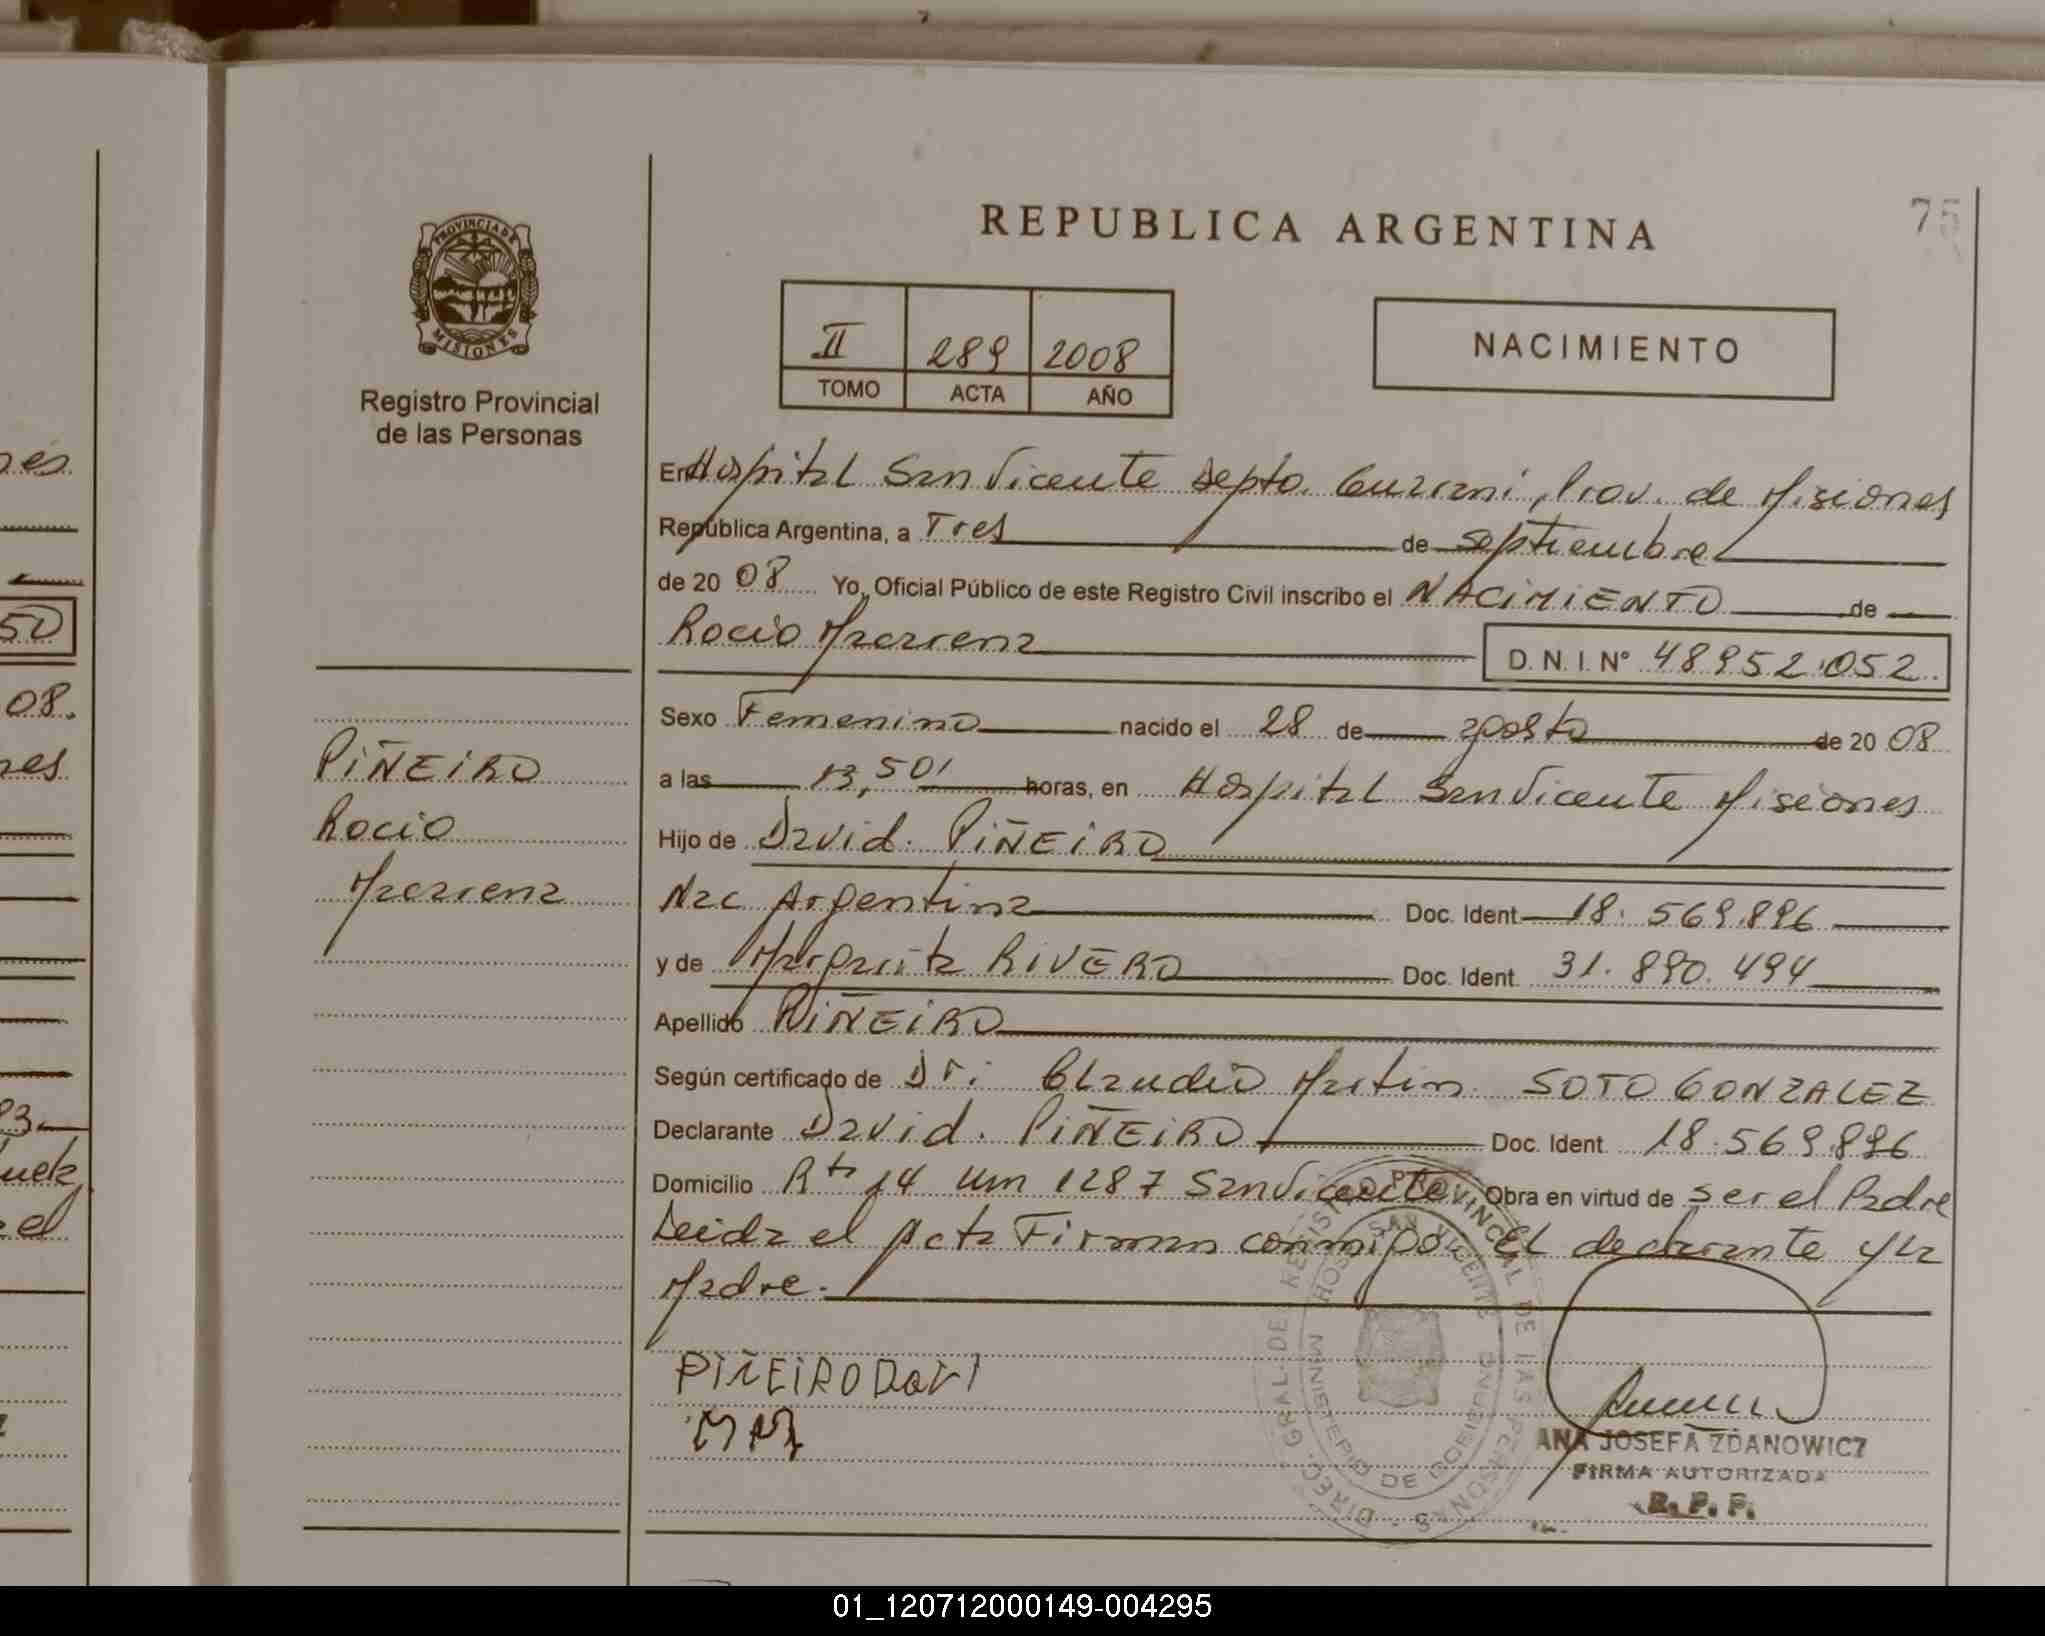 REPUBLICA ARGENTINA
75
PROVINCIA DE
MISIONES
Registro Provincial
de las Personas
II 289 2008
TOMO ACTA AÑO
NACIMIENTO
En Hospital San Vicente Depto. Guarani, Prov. de Misiones
República Argentina, a Tres de septiembre
de 20 08 Yo, Oficial Público de este Registro Civil inscribo el NACIMIENTO de
Rocio Macarena D. N. I. Nº 48952.052.
Sexo Femenino nacido el 28 de agosto de 20 08
a las 13,50' horas, en Hospital San Vicente Misiones
Hijo de David. PIÑEIRO
Nac Argentina Doc. Ident 18.569.896
y de Margarita RIVERO Doc. Ident. 31.890.494
Apellido PIÑEIRO
Según certificado de Dr: Claudio Martin SOTO GONZALEZ
Declarante David. PIÑEIRO Doc. Ident. 18.569896
Domicilio Rta 14 Km 1287 San Vicente Obra en virtud de ser el Padre
Leida el Acta Firman conmigo. El declarante y la
Madre.
PIÑEIRO
PIÑEIRO
Rocio
Macarena
DIREC. GRAL. DEL REGISTRO PROVINCIAL DE LAS PERSONAS
HOSP. SAN VICENTE
MINISTERIO DE GOBIERNO
ANA JOSEFA ZDANOWICZ
FIRMA AUTORIZADA
R. P. P.
08.
el
01_120712000149-004295